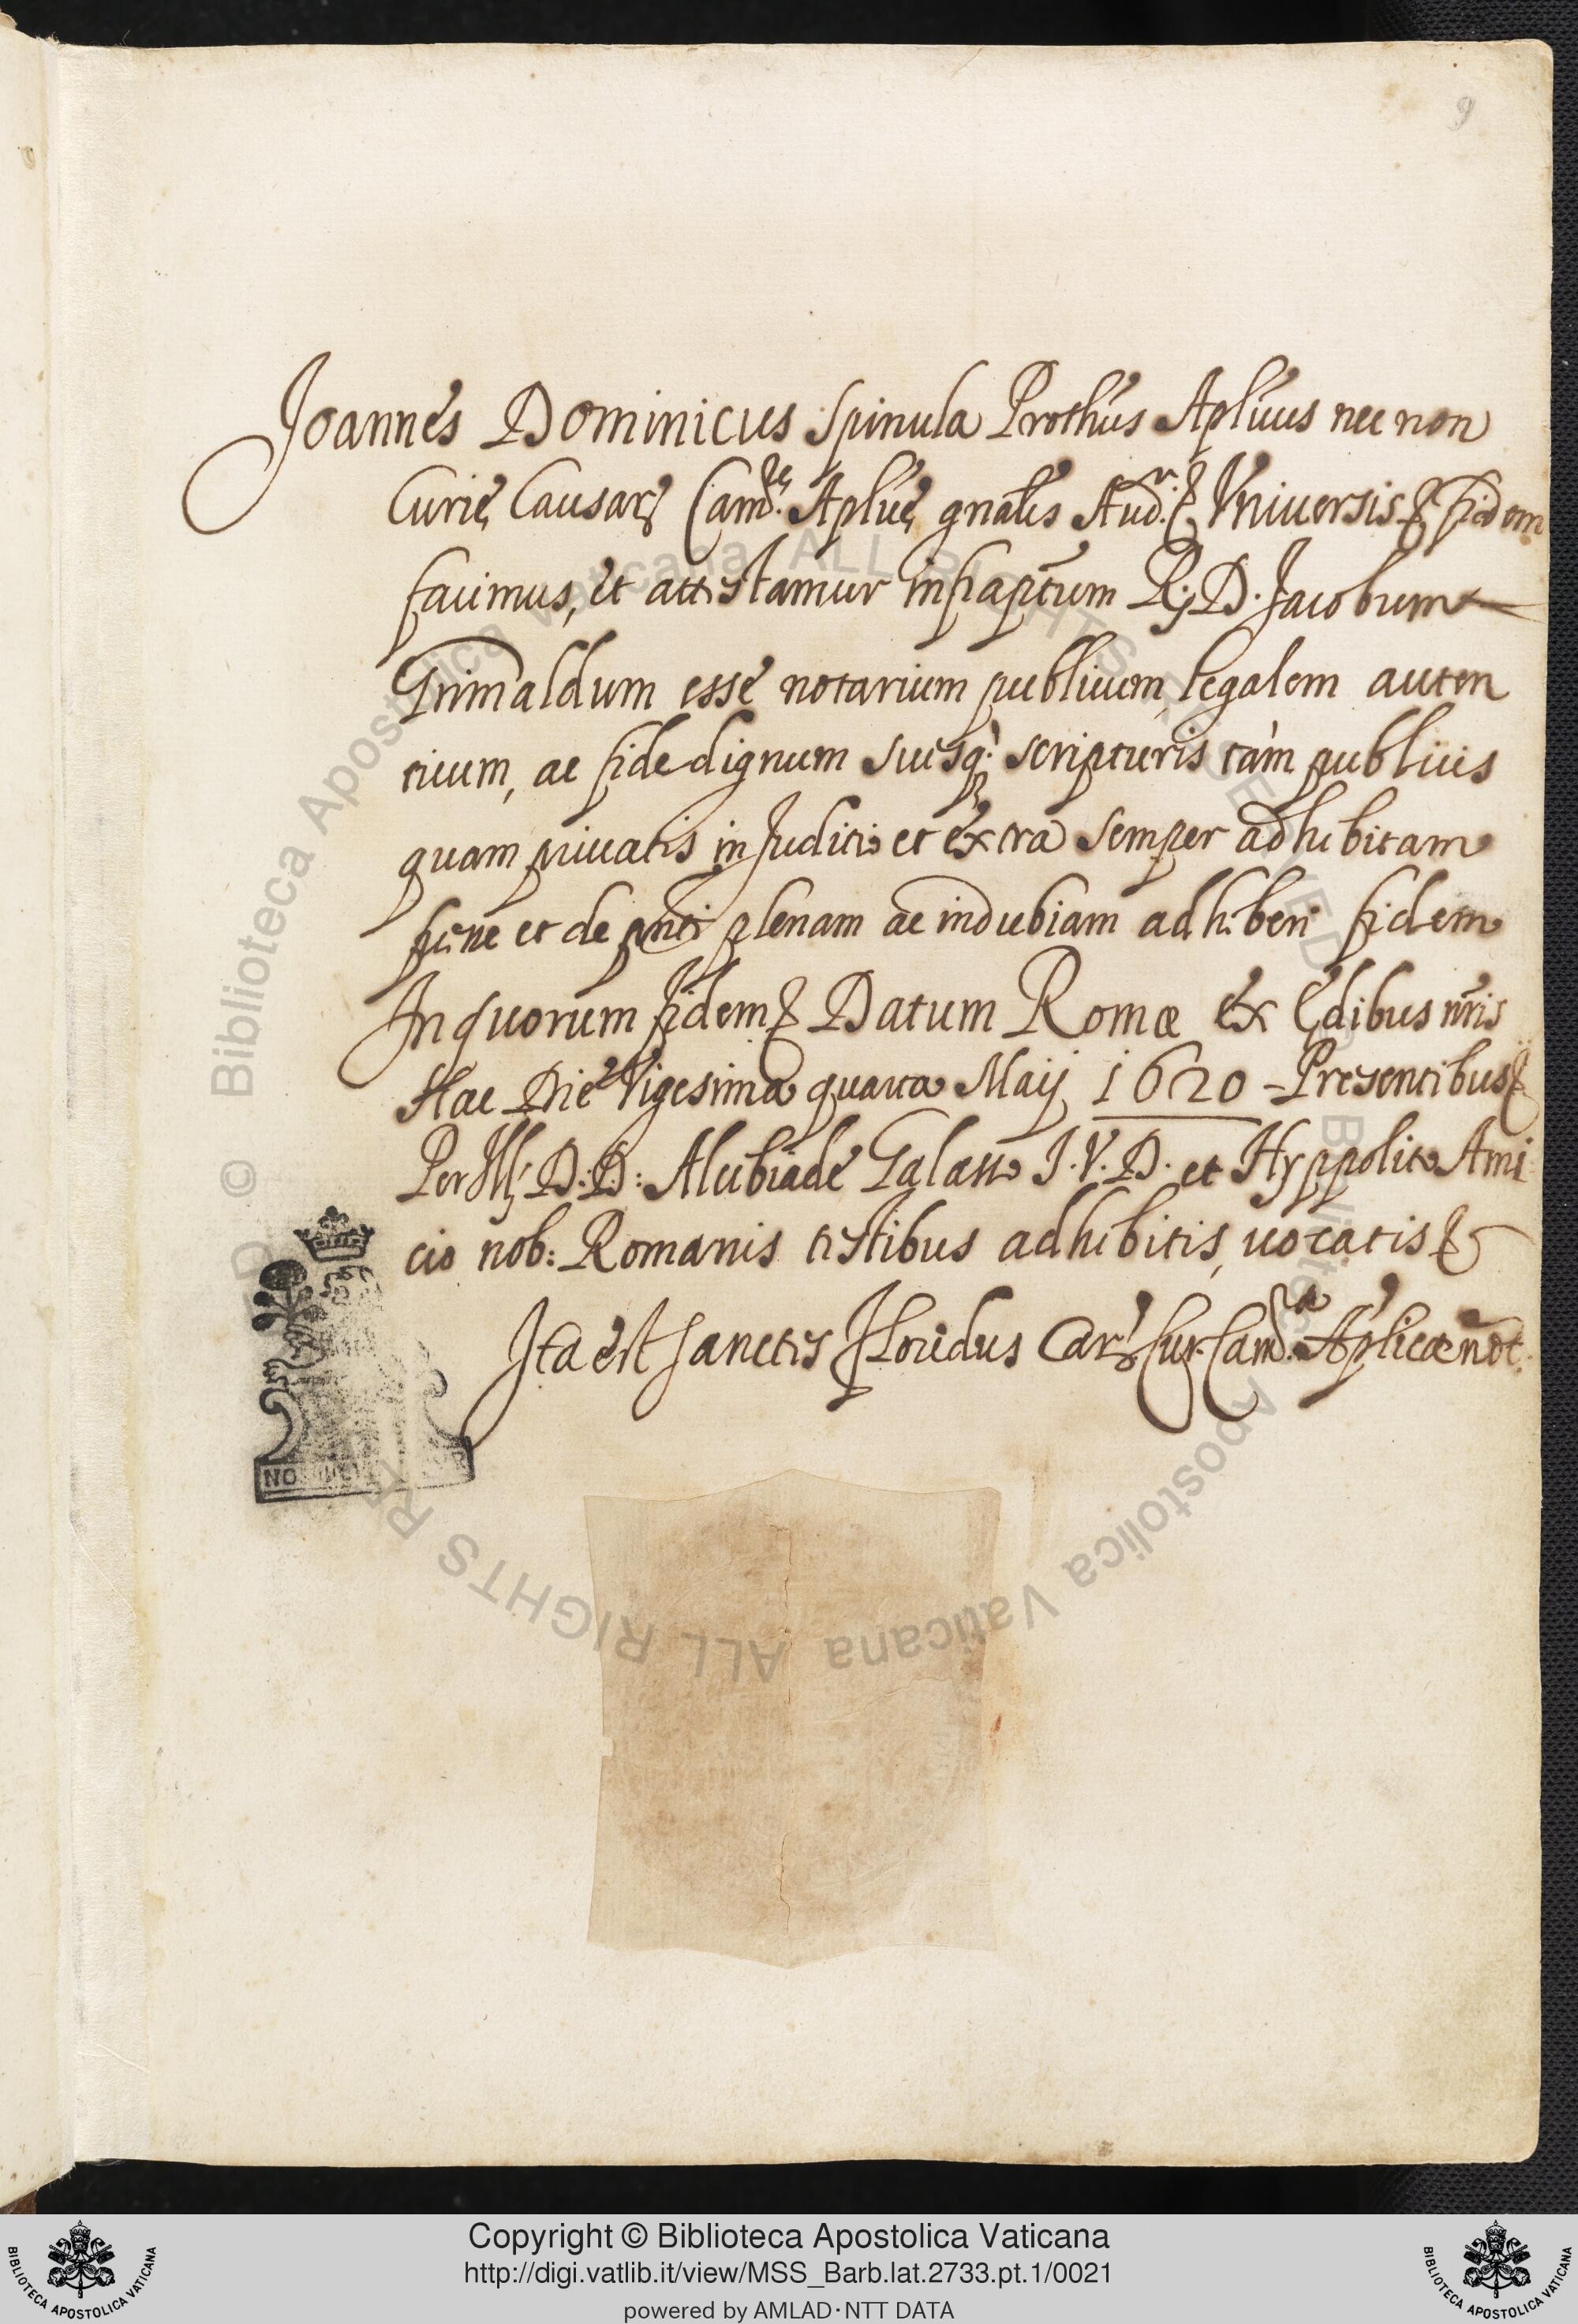 9
Joannes Dominicus Spinula Prothus Aplicus nec non
Curię Causarꝝ Camrę. Aplicę gnalis Audr. &. Vniversis &. fidem
facimus, et attestamur infraptum R. D. Jacobum
Grimaldum esse notarium publicum, legalem auten
ticum, ac fide dignum suisq; scripturis tàm publicis
quam privatis in Juditio et extra semper adhibitam
fuisse et de pnti plenam ac indubiam adhiberi fidem
In quorum fidem &. Datum Romæ ex Ędibus nris
Hac Die Vigesima quarta Maij 1620 Presentibus &.
Per Ill. D. D: Alcibiade Galasso J. V. D. et Hyppolito Ami
cio nob: Romanis testibus adhibitis, vocatis &.
Ita est Sanctes Floridus Caꝝ Cur. Cam. Aplicæ not.
NO
Copyright © Biblioteca Apostolica Vaticana
http://digi.vatlib.it/view/MSS_Barb.lat.2733.pt.1/0021
powered by AMLAD·NTT DATA
BIBLIOTECA APOSTOLICA VATICANA
BIBLIOTECA APOSTOLICA VATICANA
© Biblioteca Apostolica Vaticana ALL RIGHTS RESERVED
© Biblioteca Apostolica Vaticana ALL RIGHTS RESERVED